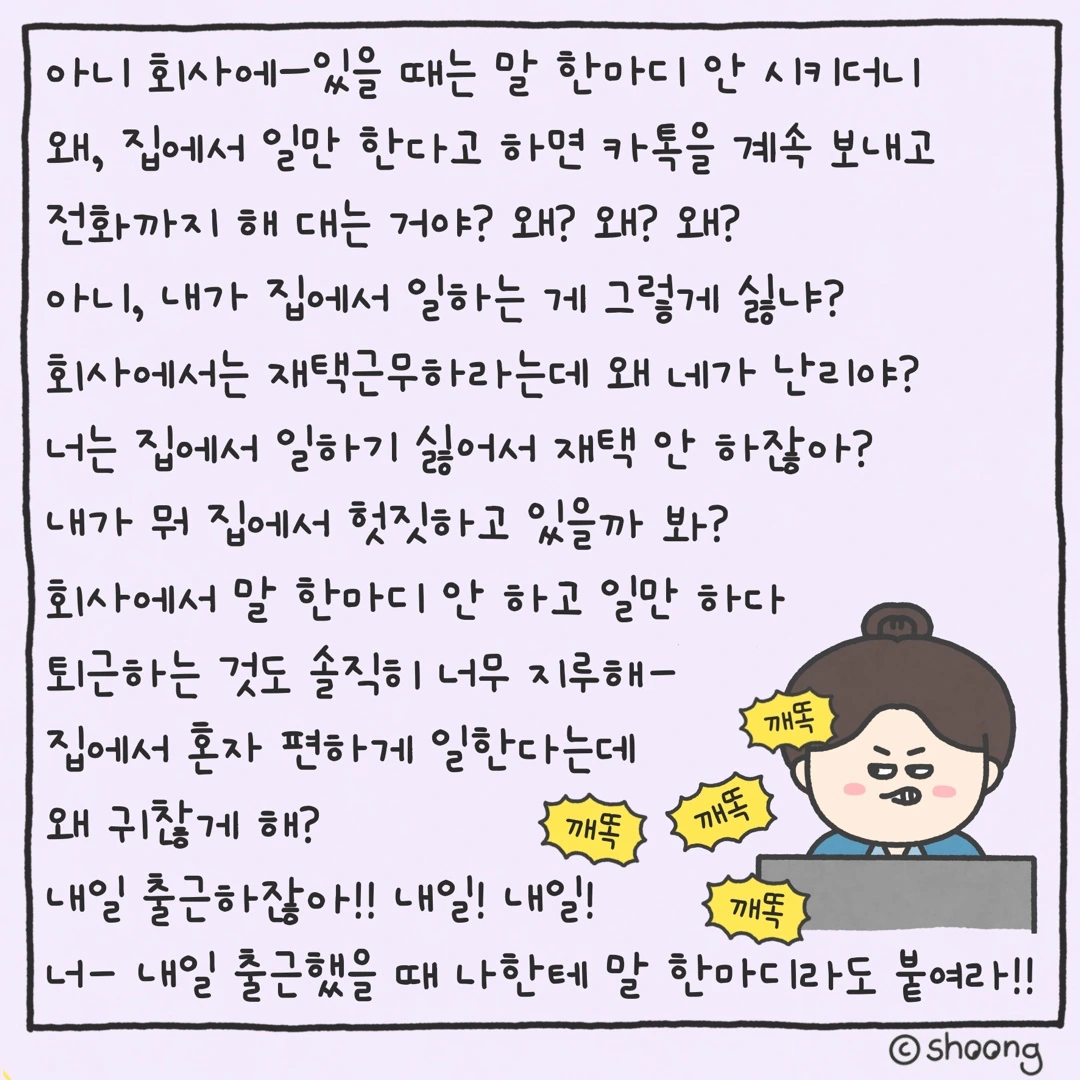 아니 회사에ㅡ있을 때는 말 한마디 안 시키더니
왜, 집에서 일만 한다고 하면 카톡을 계속 보내고
전화까지 해 대는 거야? 왜? 왜? 왜?
아니, 내가 집에서 일하는 게 그렇게 싫냐?
회사에서는 재택근무하라는데 왜 네가 난리야?
너는 집에서 일하기 싫어서 재택 안 하잖아?
내가 뭐 집에서 헛짓하고 있을까 봐?
회사에서 말 한마디 안 하고 일만 하다
퇴근하는 것도 솔직히 너무 지루해ㅡ
집에서 혼자 편하게 일한다는데
왜 귀찮게 해?
내일 출근하잖아!! 내일! 내일!
너ㅡ 내일 출근했을 때 나한테 말 한마디라도 붙여라!!
깨똑
깨똑
깨똑
깨똑
© shoong